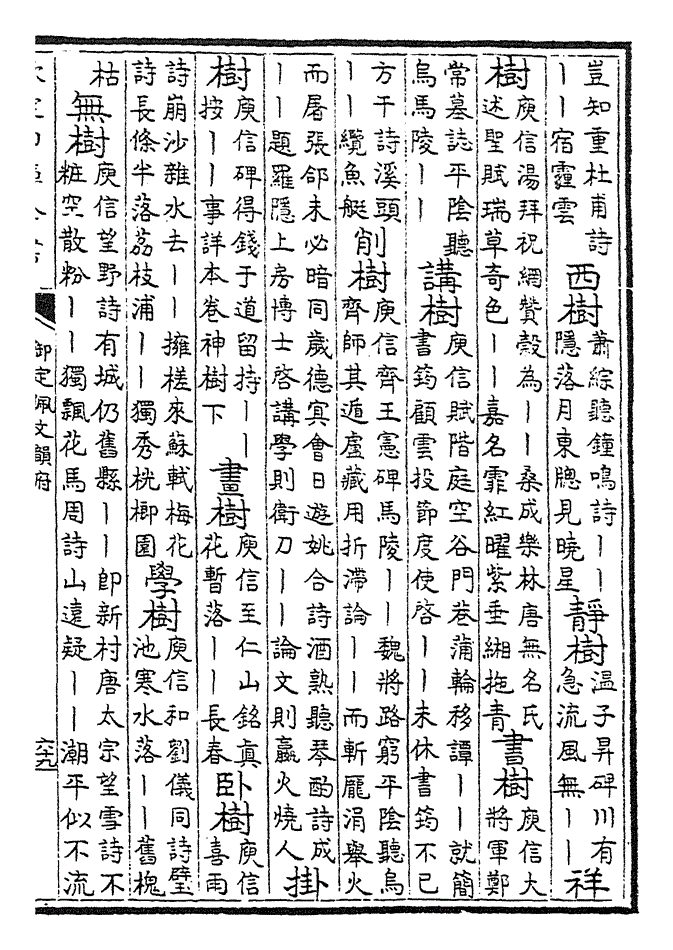 豈知重杜甫詩
丨丨宿霾雲
西樹
蕭綜聽鐘鳴詩丨丨
隱落月東牕見曉星
靜樹
溫子昇碑川有
急流風無丨丨
祥
樹
庾信湯拜祝網贊榖為丨丨桑成樂林唐無名氏
述聖賦瑞草奇色丨丨嘉名霏紅曜紫垂緗拖青
書樹
庾信大
將軍鄭
常墓誌平陰聽
烏馬陵丨丨
講樹
庾信賦階庭空谷門巷蒲輪移譚丨丨就簡
書筠顧雲投節度使啓丨丨未休書筠不已
方干詩溪頭
丨丨纜魚艇
削樹
庾信齊王憲碑馬陵丨丨魏將路窮平陰聽烏
齊師其遁虛藏用折滯論丨丨而斬龐涓舉火
而屠張郃未必暗同歲德㝠會日遊姚合詩酒熟聽琴酌詩成
丨丨題羅隱上房博士啓講學則衛刀丨丨論文則嬴火燒人
掛
樹
庾信碑得錢于道留持丨丨
按丨丨事詳本卷神樹下
畫樹
庾信至仁山銘真
花暫落丨丨長春
臥樹
庾信
喜雨
詩崩沙雜水去丨丨擁槎來蘇軾梅花
詩長條半落荔枝浦丨丨獨秀桄榔園
學樹
庾信和劉儀同詩璧
池寒水落丨丨舊槐
枯
無樹
庾信望野詩有城仍舊縣丨丨即新村唐太宗望雪詩不
粧空散粉丨丨獨飄花馬周詩山遠疑丨丨潮平似不流
御定佩文韻府
六九